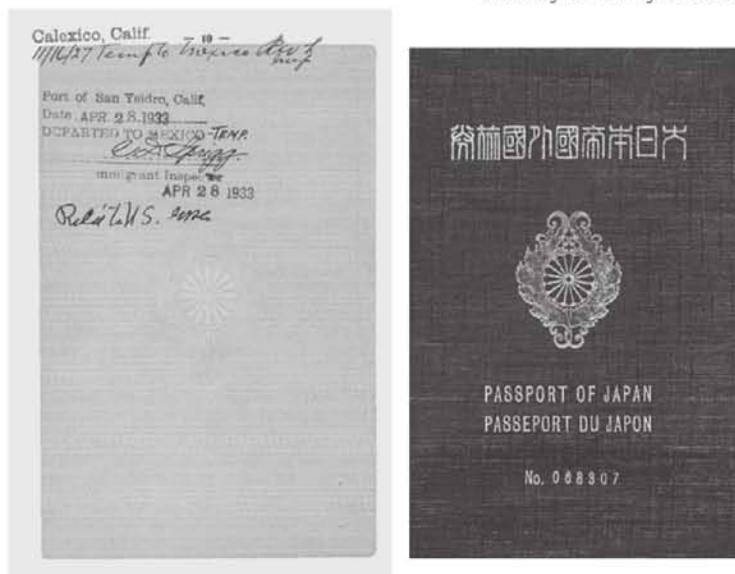 Calexico, Calif. – 19 –
11/16/27 Temp to Mexico
Port of San Ysidro, Calif.
Date APR. 28.1933
DEPARTED TO MEXICO-TEMP.
Immigrant Inspector
APR 28 1933
U.S.
大日本帝國外國旅券
PASSPORT OF JAPAN
PASSEPORT DU JAPON
No. 068307